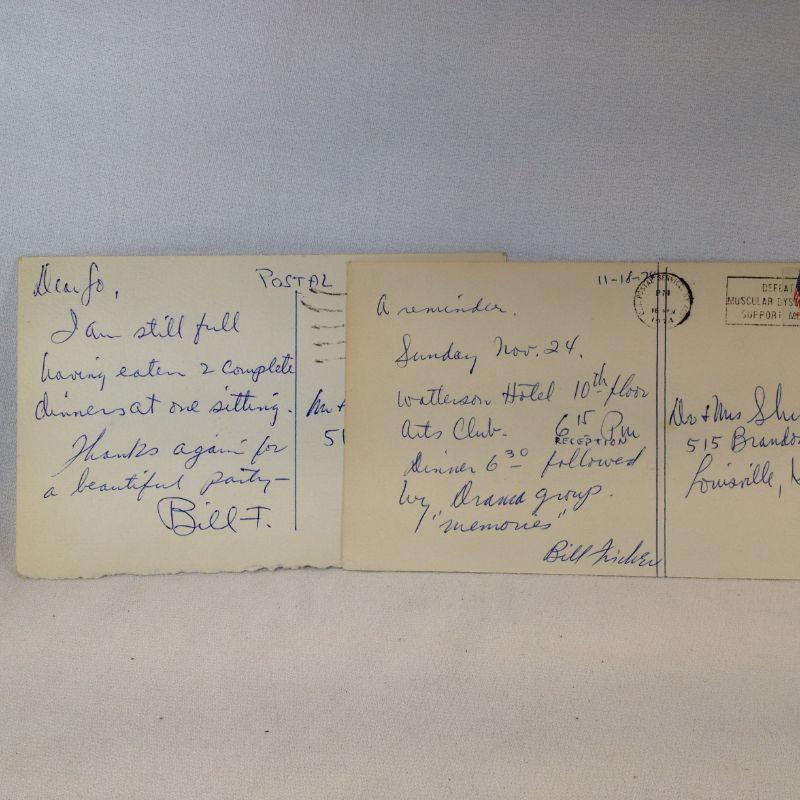 Dear Jo,
POSTAL
I am still full
having eaten 2 complete
dinners at one sitting.
Thanks again for
a beautiful party—
Bill F.
51
11-18-74
A reminder.
Sunday Nov. 24.
Watterson Hotel 10th floor
Arts Club. 6 15 Pm
RECEPTION
Dinner 6 30 followed
by Drama group.
"memories"
Bill Fischer
PM
1974
DEFEAT
MUSCULAR DYS
SUPPORT M
Dr & Mrs
515 Brando
Louisville,